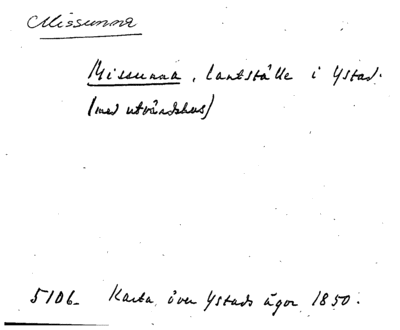 Missunna
Missunna, lantställe i Ystad.
(med utvärdshus)
5106. Karta över Ystads ägor 1850.